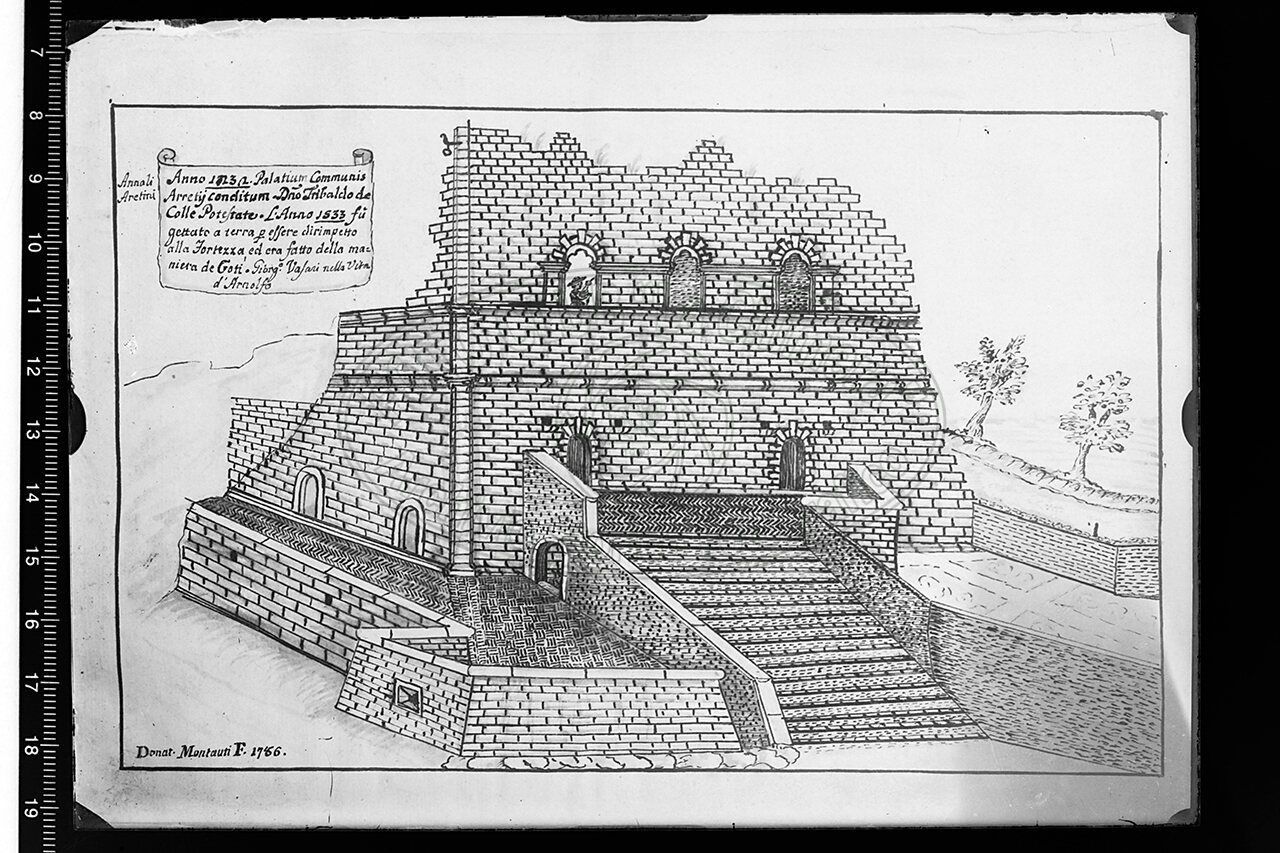 Annali
Aretini
Anno 1232. Palatium Communis
Arretij conditum. Dño Tribaldo de
Colle Potestate. L'Anno 1533 fù
gettato a terra p essere dirimpetto
alla Fortezza ed era fatto della ma=
niera de Goti. Giorg.º Vasari nella Vita
d'Arnolfo
Donat. Montauti F. 1786.
7
8
9
10
11
12
13
14
15
16
17
18
19